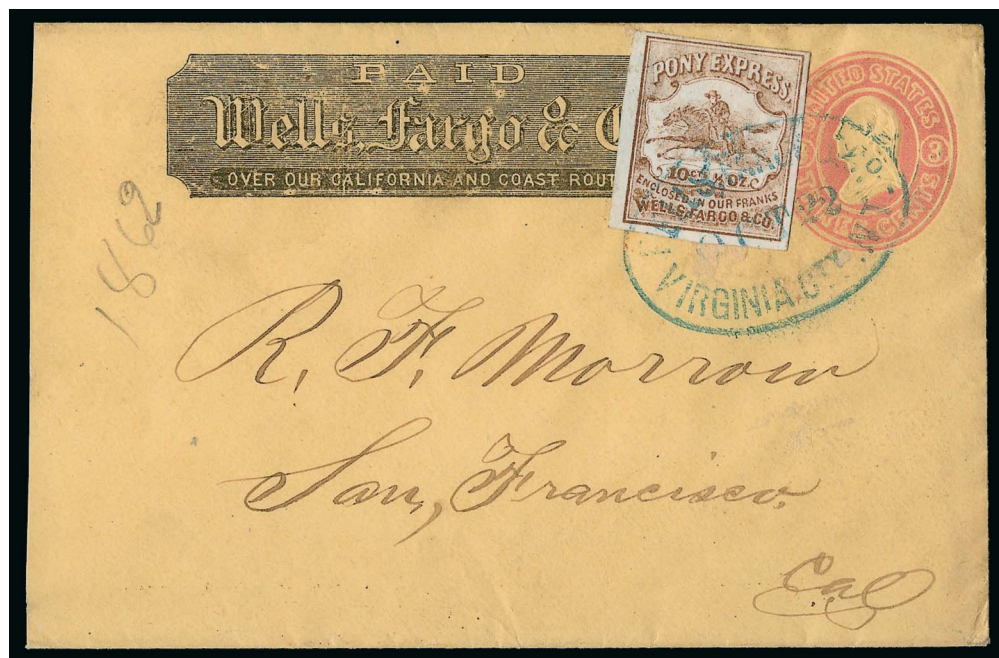 PAID
Wells, Fargo & C
OVER OUR CALIFORNIA AND COAST ROUT
PONY EXPRESS
10cts ½ OZ.
ENCLOSED IN OUR FRANKS
WELLS, FARGO & CO.
UNITED STATES
3
CENTS
22
VIRGINIA CTY
1862
R. F. Morrow
San, Francisco.
Cal